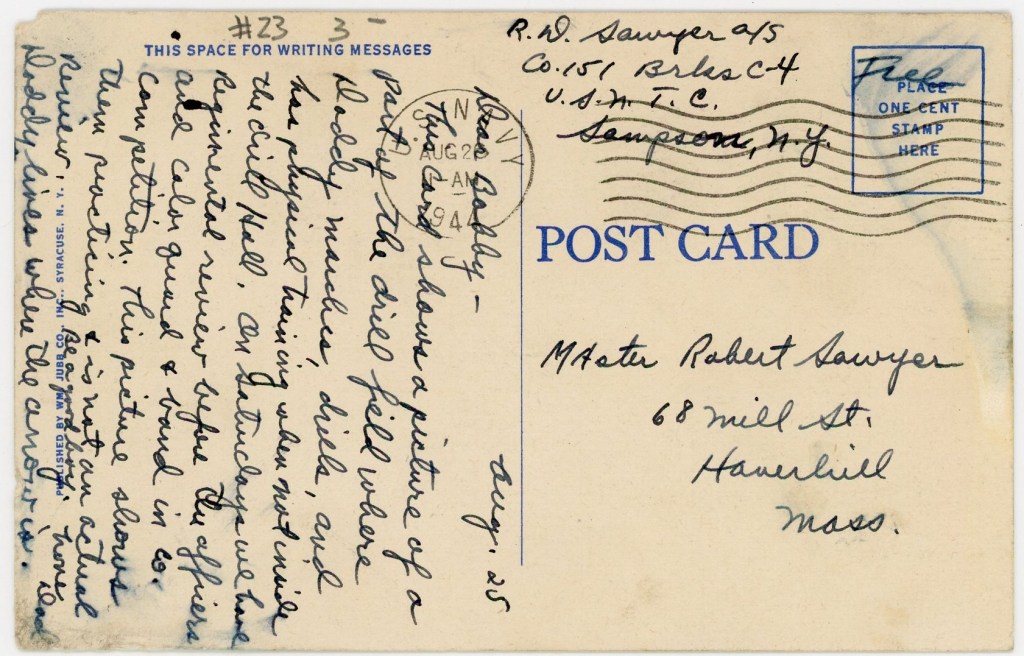 #23 3-
THIS SPACE FOR WRITING MESSAGES
Aug. 25
Dear Bobby -
This card shows a picture of a
part of the drill field where
Daddy marches, drills, and
has physical training when not inside
the drill Hall. On Saturdays we have
Regimental review before the officers
and color guard & band in co.
Competition. This picture shows
them practicing & is not an actual
Review. Be a good boy. Love Dad
Daddy lives where the arrow is.
PUBLISHED BY WM. JUBB CO., INC., SYRACUSE, N. Y.
R. D. Sawyer A/S
Co. 151 Brks C-4
U. S. N. T. C.
Sampson, N. Y.
Free
PLACE
ONE CENT
STAMP
HERE
AUG 26
AM
1944
POST CARD
Master Robert Sawyer
68 Mill St.
Haverhill
Mass.